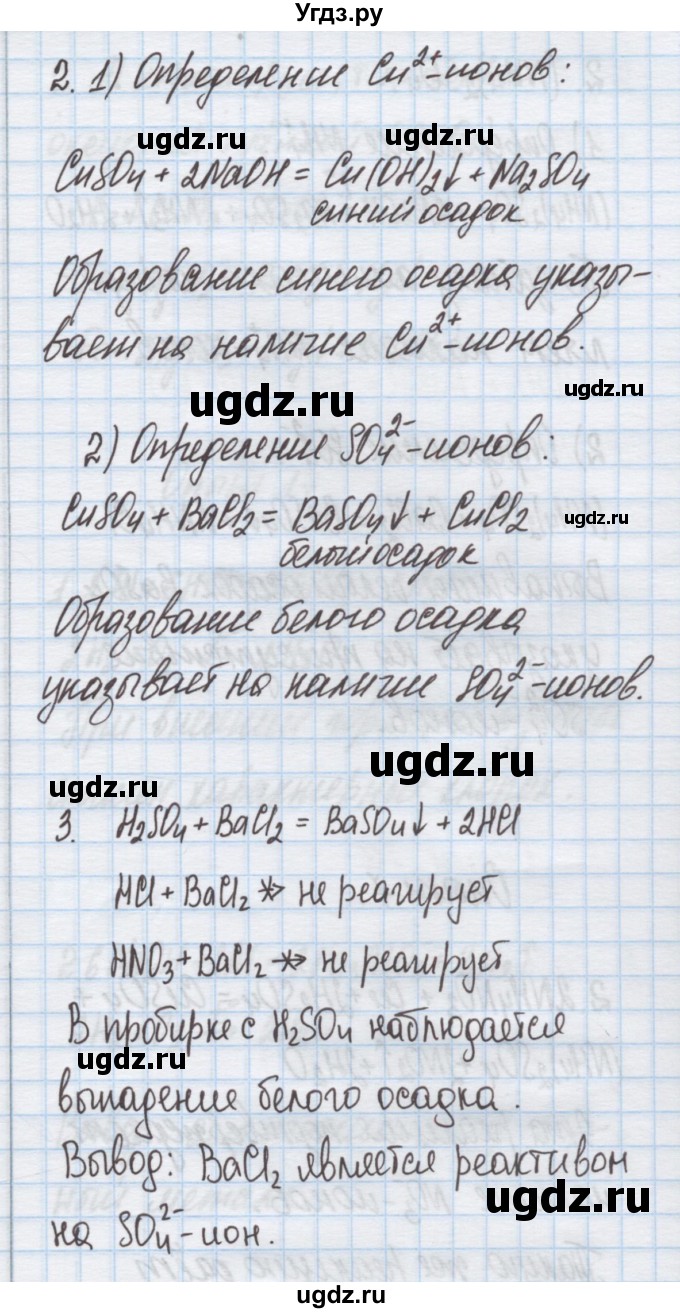 Угдз.ру
2. 1) Определение Cu²⁺-ионов:
ugdz.ru ugdz.ru
CuSO₄ + 2NaOH = Cu(OH)₂↓ + Na₂SO₄
синий осадок
Образование синего осадка указы-
вает на наличие Cu²⁺-ионов.
ugdz.ru ugdz.ru
2) Определение SO₄²⁻-ионов:
CuSO₄ + BaCl₂ = BaSO₄↓ + CuCl₂
ugdz.ru
белый осадок
Образование белого осадка
указывает на наличие SO₄²⁻-ионов.
ugdz.ru
ugdz.ru
3. H₂SO₄ + BaCl₂ = BaSO₄↓ + 2HCl
HCl + BaCl₂ ↛ не реагирует
HNO₃ + BaCl₂ ↛ не реагирует
В пробирке с H₂SO₄ наблюдается
ugdz.ru ugdz.ru
выпадение белого осадка.
Вывод: BaCl₂ является реактивом
ugdz.ru
на SO₄²⁻-ион.
ugdz.ru